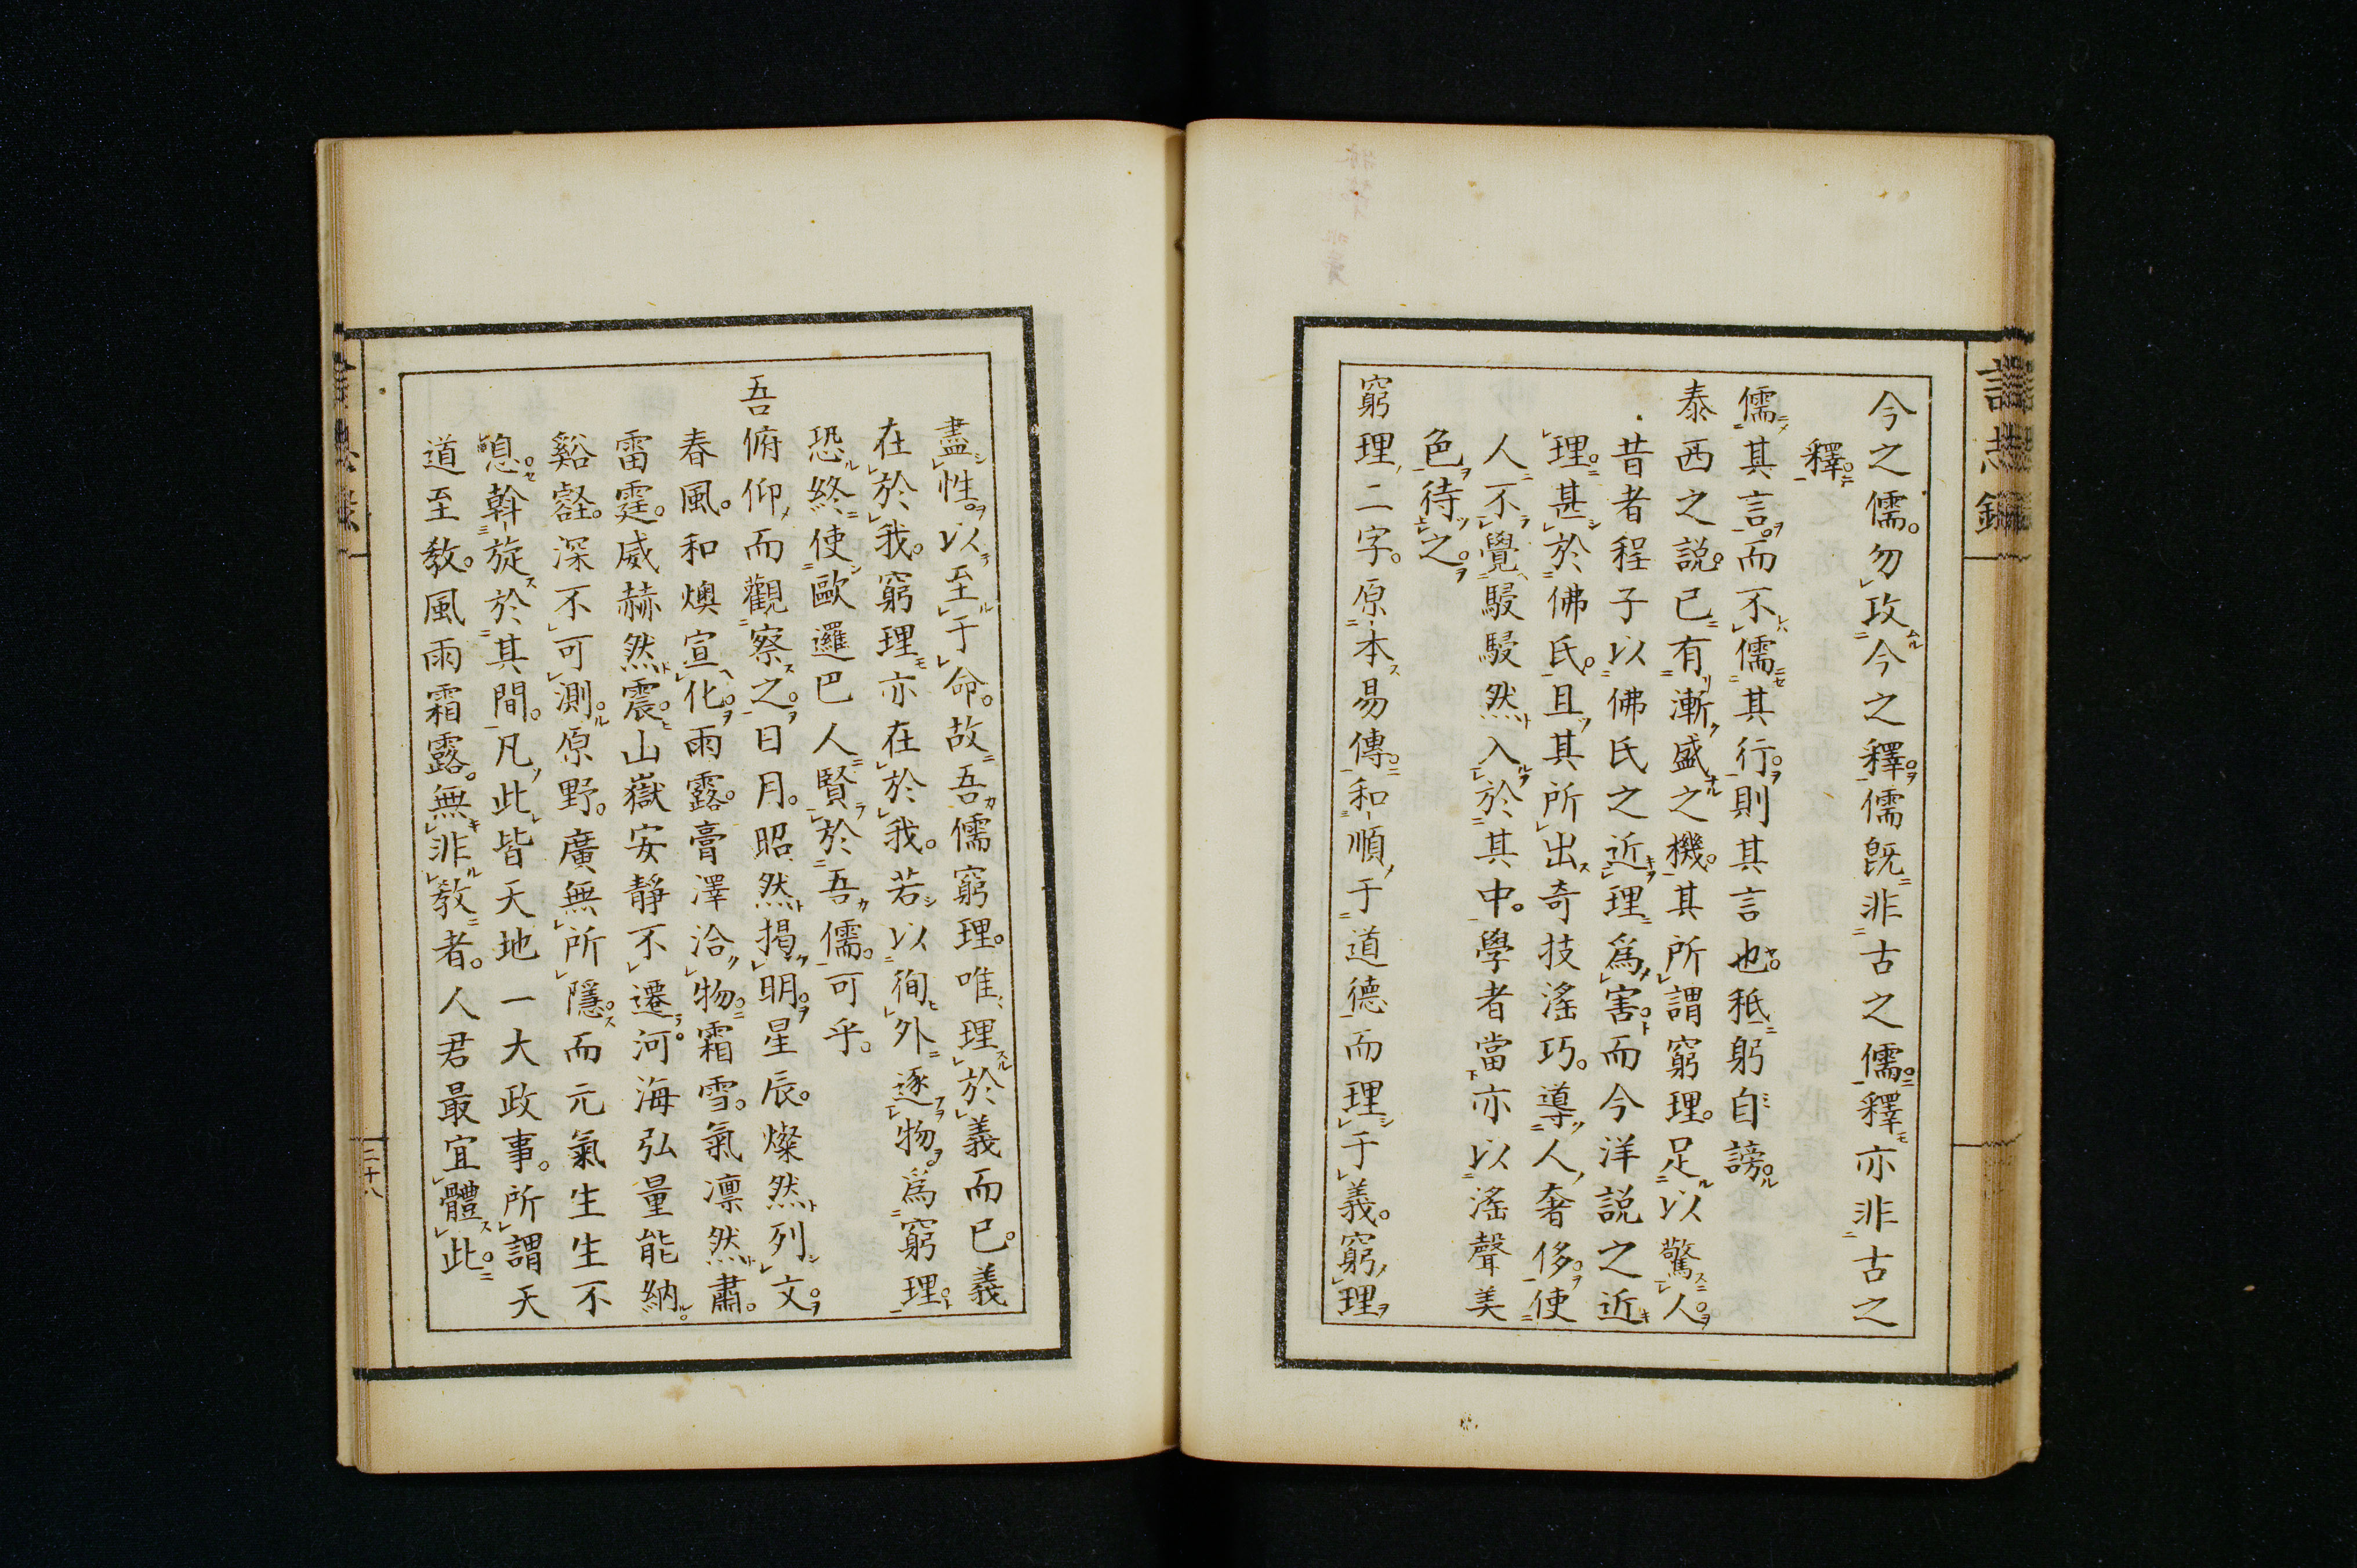 今之儒。勿攻今之釋。儒既非古之儒。釋亦非古之
釋。
儒其言。而不儒其行。則其言也。秖躬自謗。
泰西之説。已有漸盛之機。其所謂窮理。足以驚人。
昔者程子以佛氏之近理爲害。而今洋説之近
理。甚於佛氏。且其所出奇技滛巧。導人奢侈。使
人不覺駸駸然入於其中。學者當亦以滛聲美
色待之。
窮理二字。原本易傳。和順于道德而理于義。窮理
盡性。以至于命。故吾儒窮理。唯理於義而已。義
在於我。窮理亦在於我。若以徇外逐物。爲窮理。
恐終使歐邏巴人賢於吾儒。可乎。
吾俯仰而觀察之。日月。昭然掲明。星辰。燦然列文。
春風。和燠宣化。雨露。膏澤洽物。霜雪。氣凛然肅。
雷霆。威赫然震。山嶽安靜不遷。河海弘量能納。
谿壑。深不可測。原野。廣無所隱。而元氣生生不
息。斡旋於其間。凡此皆天地一大政事。所謂天
道至教。風雨霜露。無非教者。人君最宜體此。
二十八